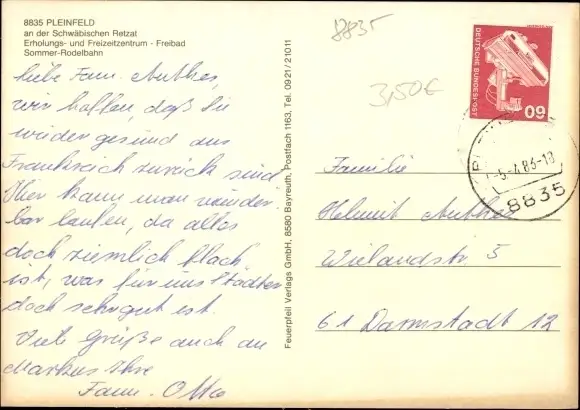 8835 PLEINFELD
an der Schwäbischen Retzat
Erholungs- und Freizeitzentrum - Freibad
Sommer-Rodelbahn
liebe Fam. Anthes,
wir hoffen, daß Sie
wieder gesund aus
Frankreich zurück sind.
Hier kann man wunder-
bar laufen, da alles
doch ziemlich flach
ist, was für uns Städter
doch sehr gut ist.
Viele Grüße auch an
Markus Ihre
Fam. Otto
Feuerpfeil Verlags GmbH, 8580 Bayreuth, Postfach 1163, Tel. 09 21 / 2 10 11
8835
3,50€
DEUTSCHE BUNDESPOST
60
-5.-4.83-18
8835
Familie
Helmut Anthes
Wielandstr. 5
61 Darmstadt 12